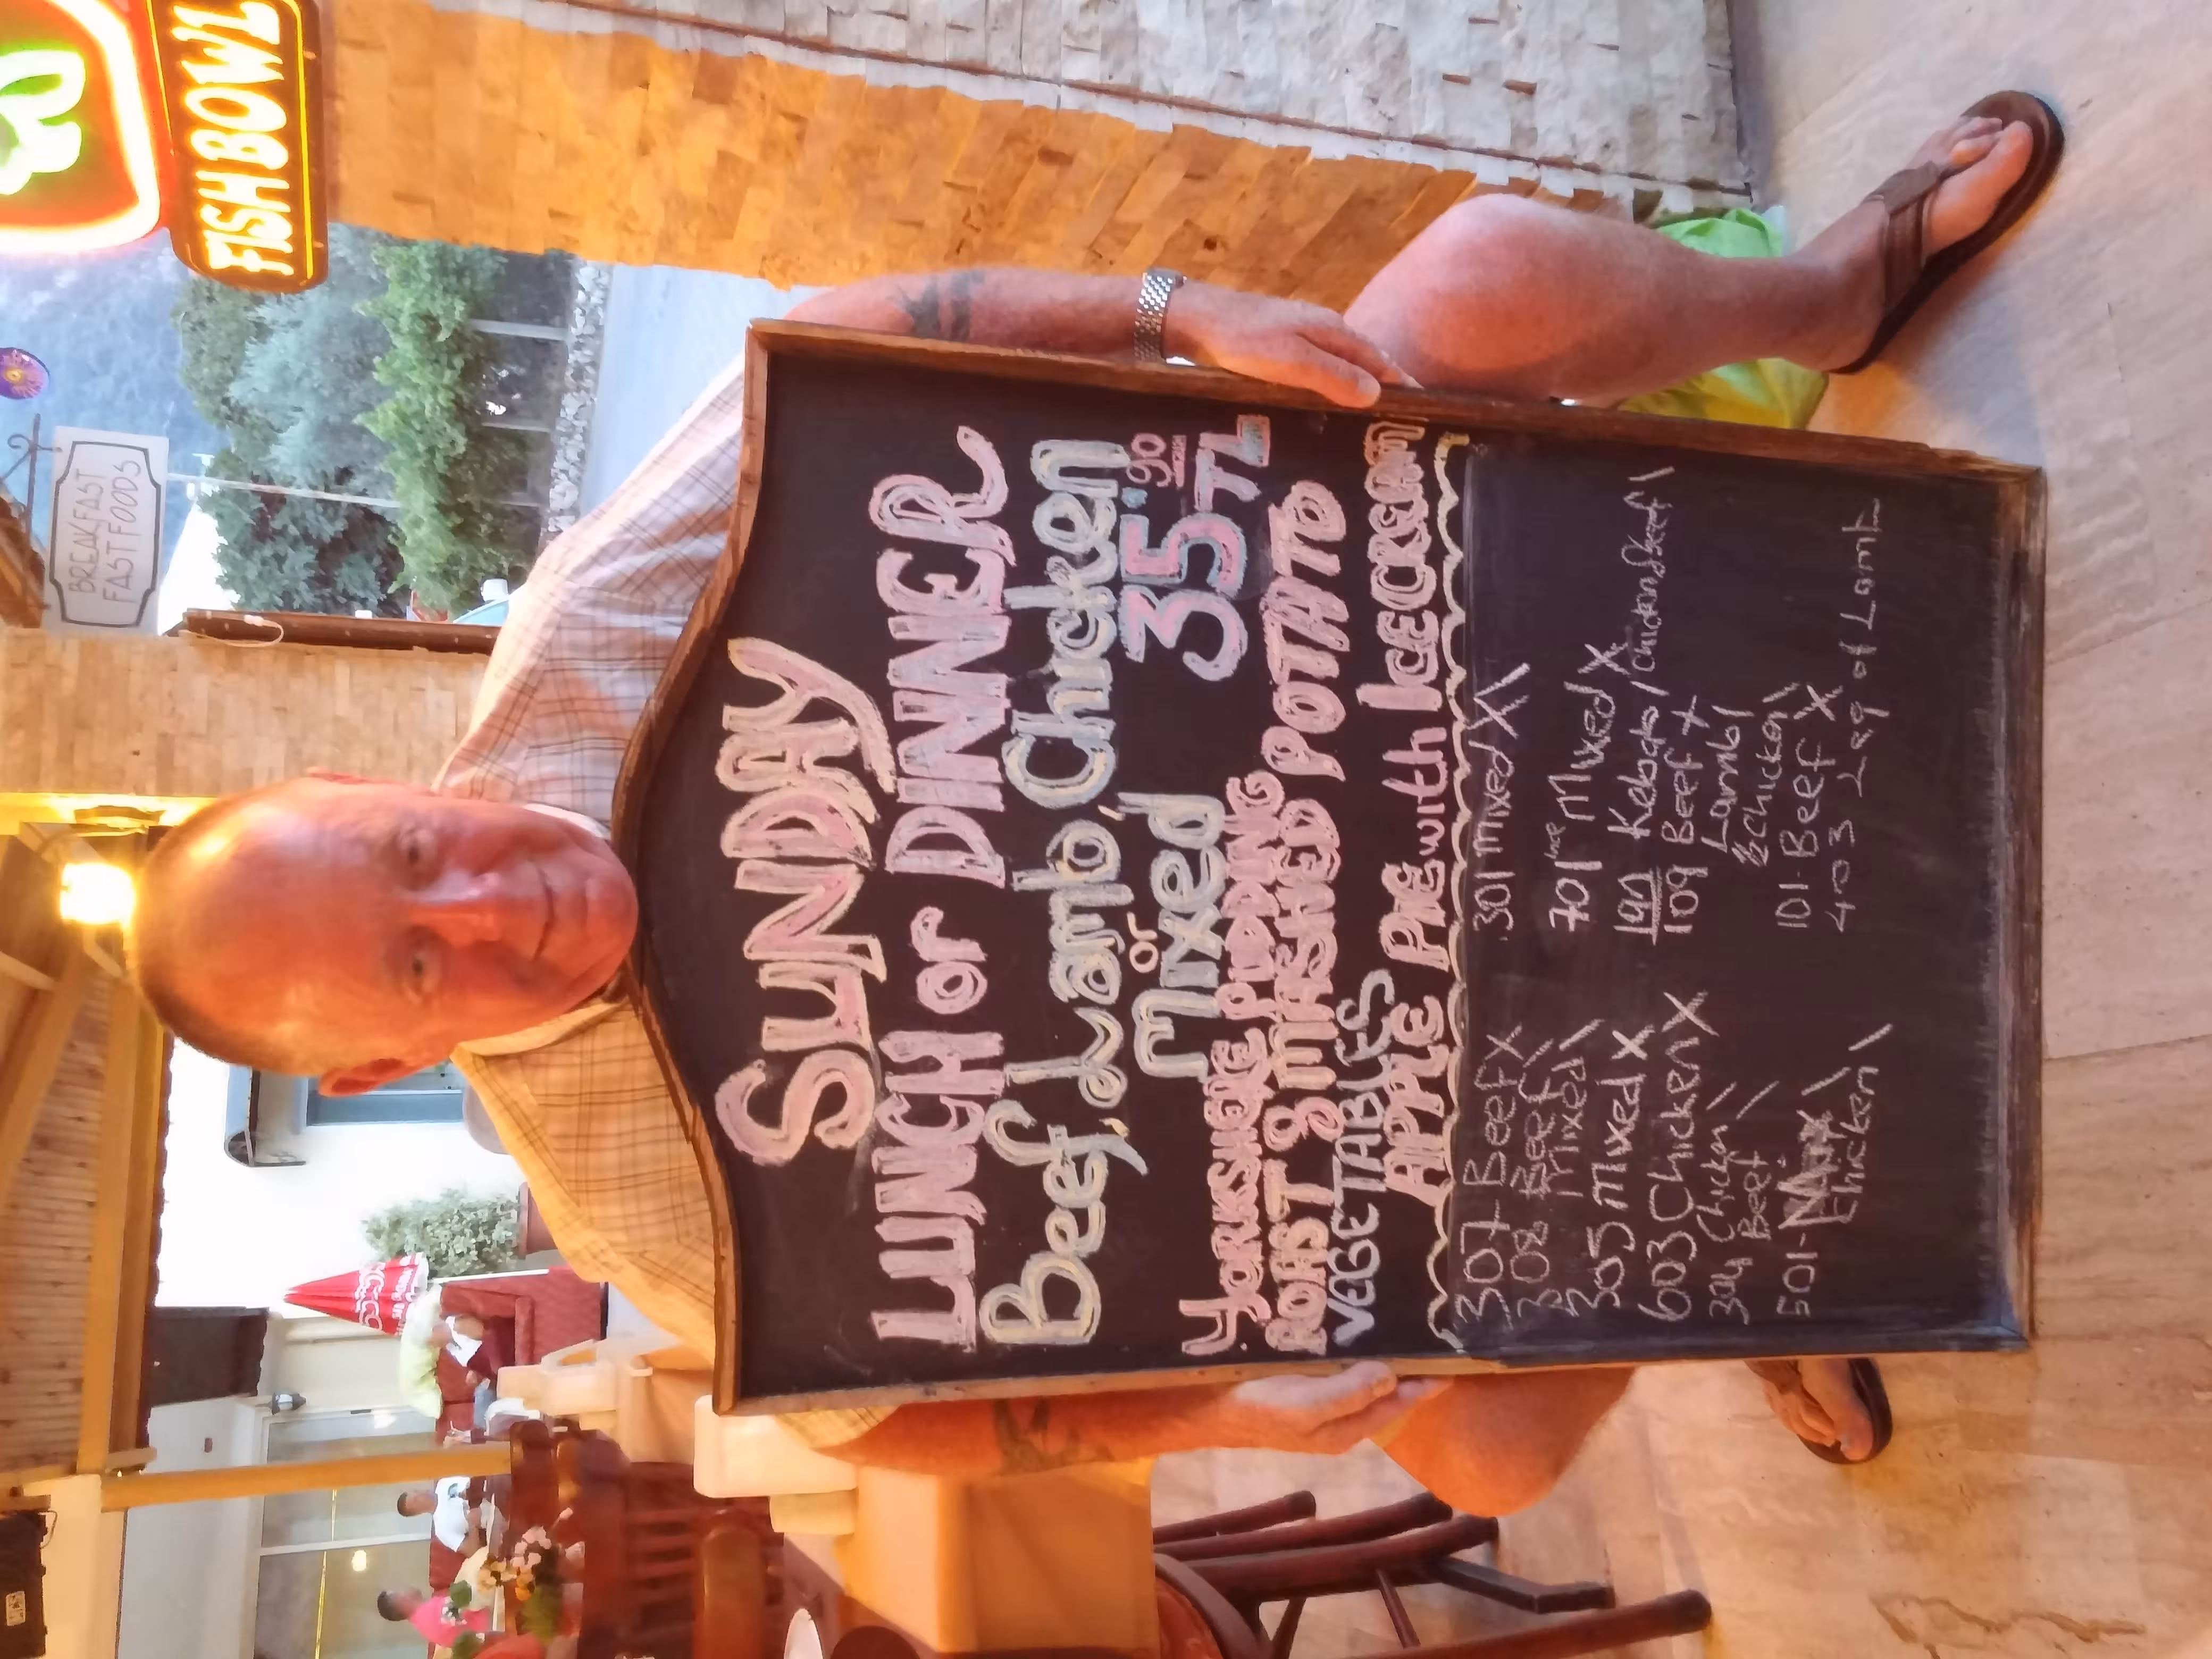 FISH BOWL
BREAKFAST
FAST FOODS
SUNDAY
LUNCH or DINNER
Beef, Lamb, Chicken
or
Mixed
35.90 TL
YORKSIERE PUDDING
ROAST & MASHED POTATO
VEGETABLES
APPLE PIE with ICE CREAM
307 Beef X
308 Beef \
Mixed \
305 Mixed X
603 Chicken X
304 Chicken \
Beef \
501-
Chicken \
301 Mixed X \
701 Mixed X
Kebab / Chicken & Beef \
109 Beef X
Lamb /
& Chicken \
101-Beef X
403 Leg of Lamb